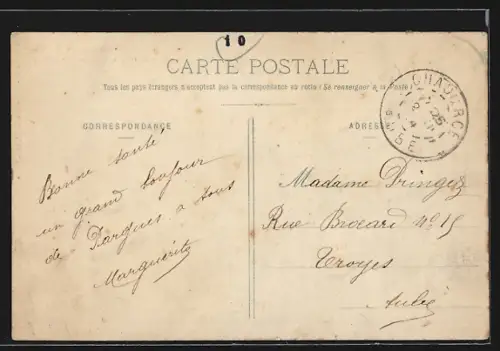 10
CARTE POSTALE
Tous les pays étrangers n'acceptent pas la correspondance au recto (Se renseigner à la Poste)
CORRESPONDANCE
ADRESSE
CHAOURCE
AUBE
Bonne santé
un grand bonjour
de Pargues à tous
Marguerite
Madame
Rue Brocard No 15
Troyes
Aube